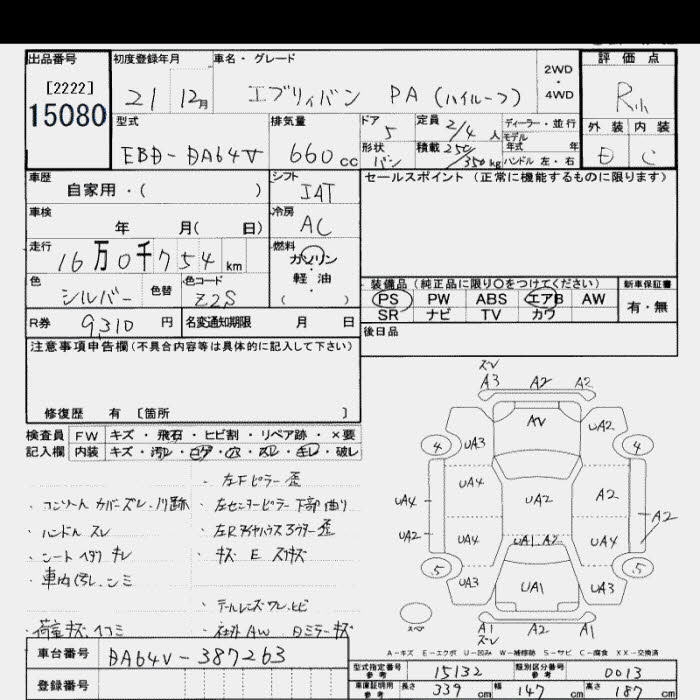 出品番号
[2222]
15080
初度登録年月
21 12月
車名・グレード
エブリィバン PA (ハイルーフ)
2WD
・
4WD
評価点
外装 内装
D C
型式
EBD-DA64V
排気量
660cc
ドア
5
形状
バン
定員 2/4 人
積載 250/350kg
ディーラー・並行
モデル
年式 年
ハンドル 左・右
車歴
自家用・( )
シフト
IAT
セールスポイント (正常に機能するものに限ります)
車検
年 月( 日)
冷房
AC
走行
16万0千754km
燃料
ガソリン
・
軽油
( )
色
シルバー
色替
色コード
Z2S
装備品 (純正品に限り○をつけてください)
PS PW ABS エアB AW
SR ナビ TV カワ
新車保証書
有・無
R券
9,310円
名変通知期限 月 日
後日品
注意事項申告欄(不具合内容等は具体的に記入して下さい)
修復歴 有 [箇所 ]
検査員 FW キズ・飛石・ヒビ割・リペア跡・×要
記入欄 内装 キズ・汚レ・コゲ・穴・スレ・キレ・破レ
・左Fピラー歪
・コンソールカバーズレ、ノリ跡
・左センターピラー下部曲り
・ハンドルスレ
・左Rタイヤハウスアウター歪
・シートヘタリ キレ
・キズ E スリキズ
・車内汚レ、シミ
・テールレンズワレ、ヒビ
・荷室キズ、ヘコミ
・社外AW 白ミラーキズ
ズレ
A3 A2 A2
AV
4 UA3 UA2 4
UA4 UA4 UA2 A2
UA2 UA4 UA1.A2 UA4 A2
5 UA3 UA1 UA3 5
スペア
A1 A2 A1
ズレ
A-キズ E-エクボ U-凹み W-補修跡 S-サビ C-腐食 XX-交換済
車台番号
DA64V-387263
登録番号
型式指定番号
参考
15132
類別区分番号
参考
0013
車庫証明用
参考
長さ 339cm 幅 147cm 高さ 187cm